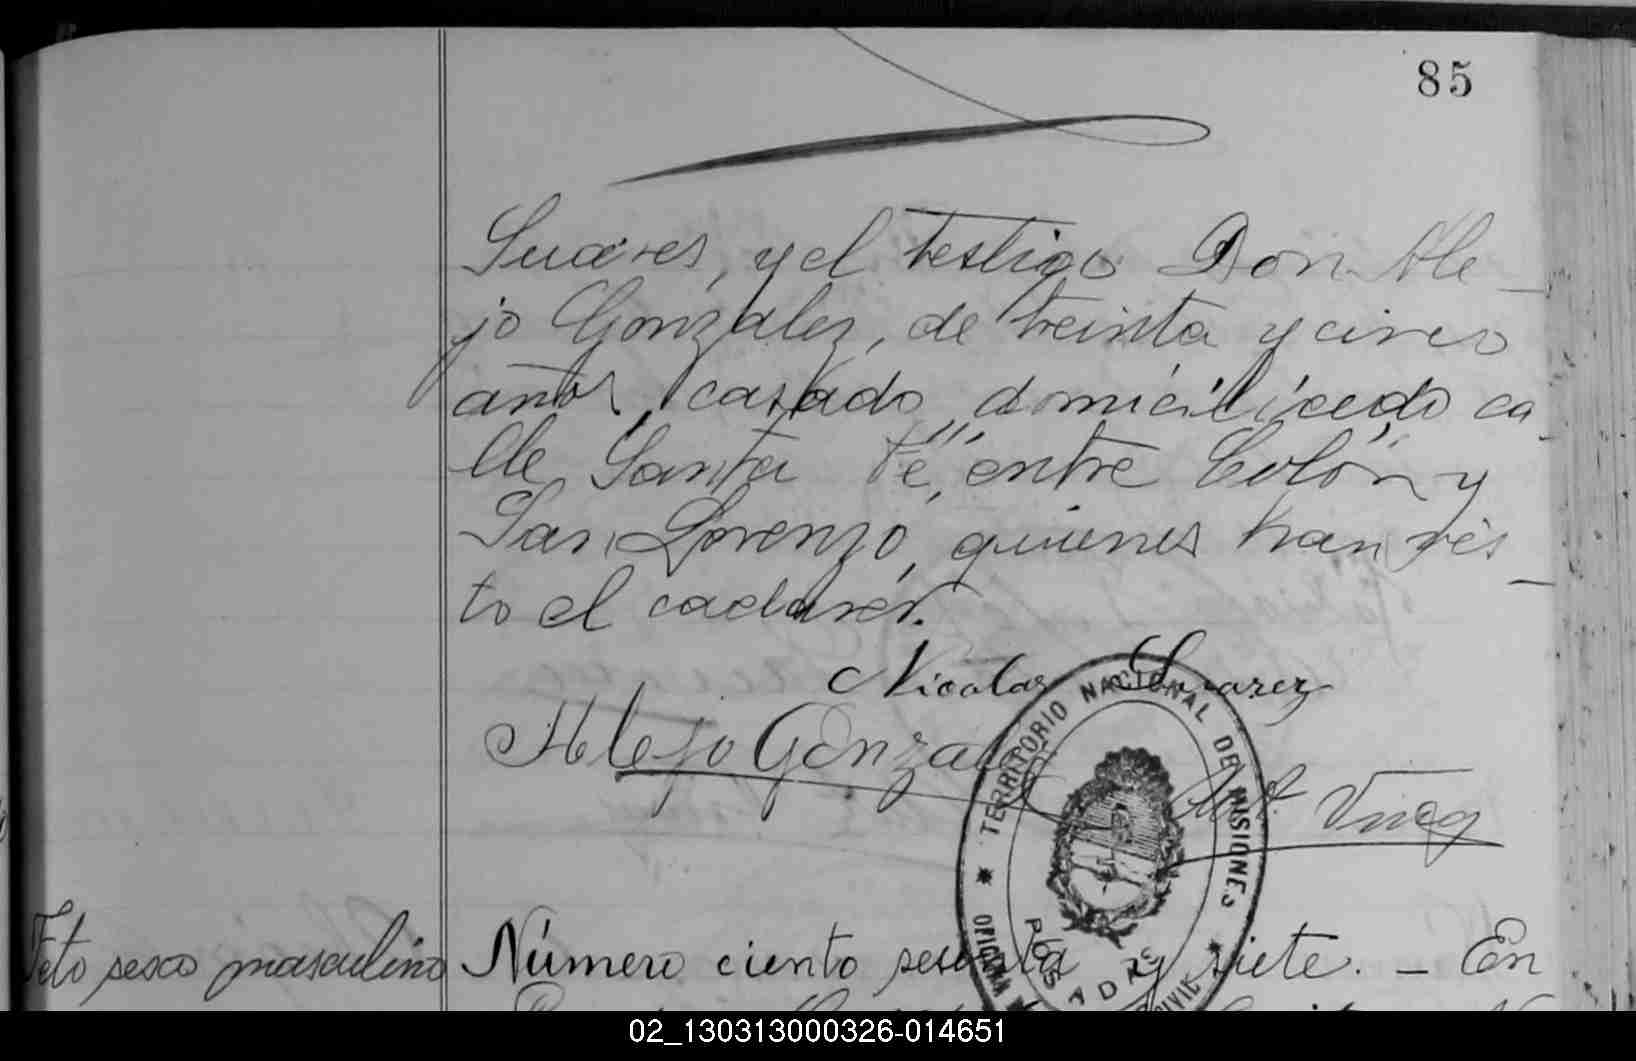 85
Suares, y el testigo Don Ale_
jo Gonzalez, de treinta y cinco
años, casado, domiciliado ca_
lle Santa Fé, entre Colón y
San Lorenzo, quienes han vis_
to el cadaver.
Nicolas Suarez
Alejo Gonzalez
TERRITORIO NACIONAL DE MISIONES
OFICINA
CIVIL
POSADAS
Feto sexo masculino
Número ciento sesenta y siete. _ En
02_130313000326-014651